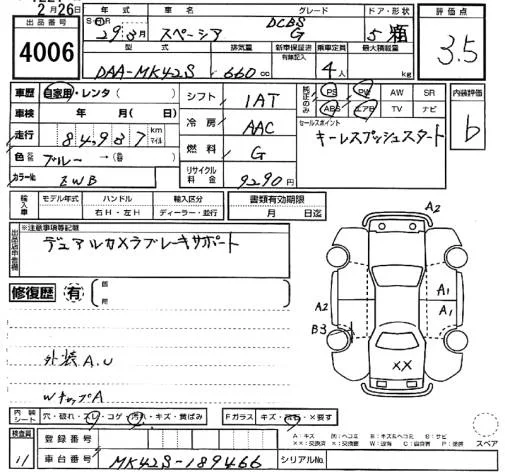 2月26日
出品番号
4006
年式 車名 グレード ドア・形状
29年3月 スペーシア DCBS G 5 箱
評価点
3.5
型式 排気量 新車保証書 有無記入 乗車定員 最大積載量
DAA-MK42S 660cc 4人 kg
車歴 自家用・レンタ( )
車検 年 月( )
走行 84,987 km マイル
色 ブルー →( 替)
カラーNo. ZWB
シフト IAT
冷房 AAC
燃料 G
リサイクル料金 9290円
純正のみ
PS PW AW SR
ABS エアB TV ナビ
セールスポイント
キーレスプッシュスタート
内装評価
b
輸入車 モデル年式 ハンドル 輸入区分 書類有効期限
右H・左H ディーラー・並行 月 日迄
※注意事項等記載
デュアルカメラブレーキサポート
修復歴 有
外装A.U
WナップA
A2
A1
A2 A1
B3
XX
内装シート 穴・破れ・スレ・コゲ・汚れ・キズ・黄ばみ Fガラス キズ・飛石・×要す
検査員
11
登録番号
車台番号 MK42S-189466 シリアルNo.
スペア